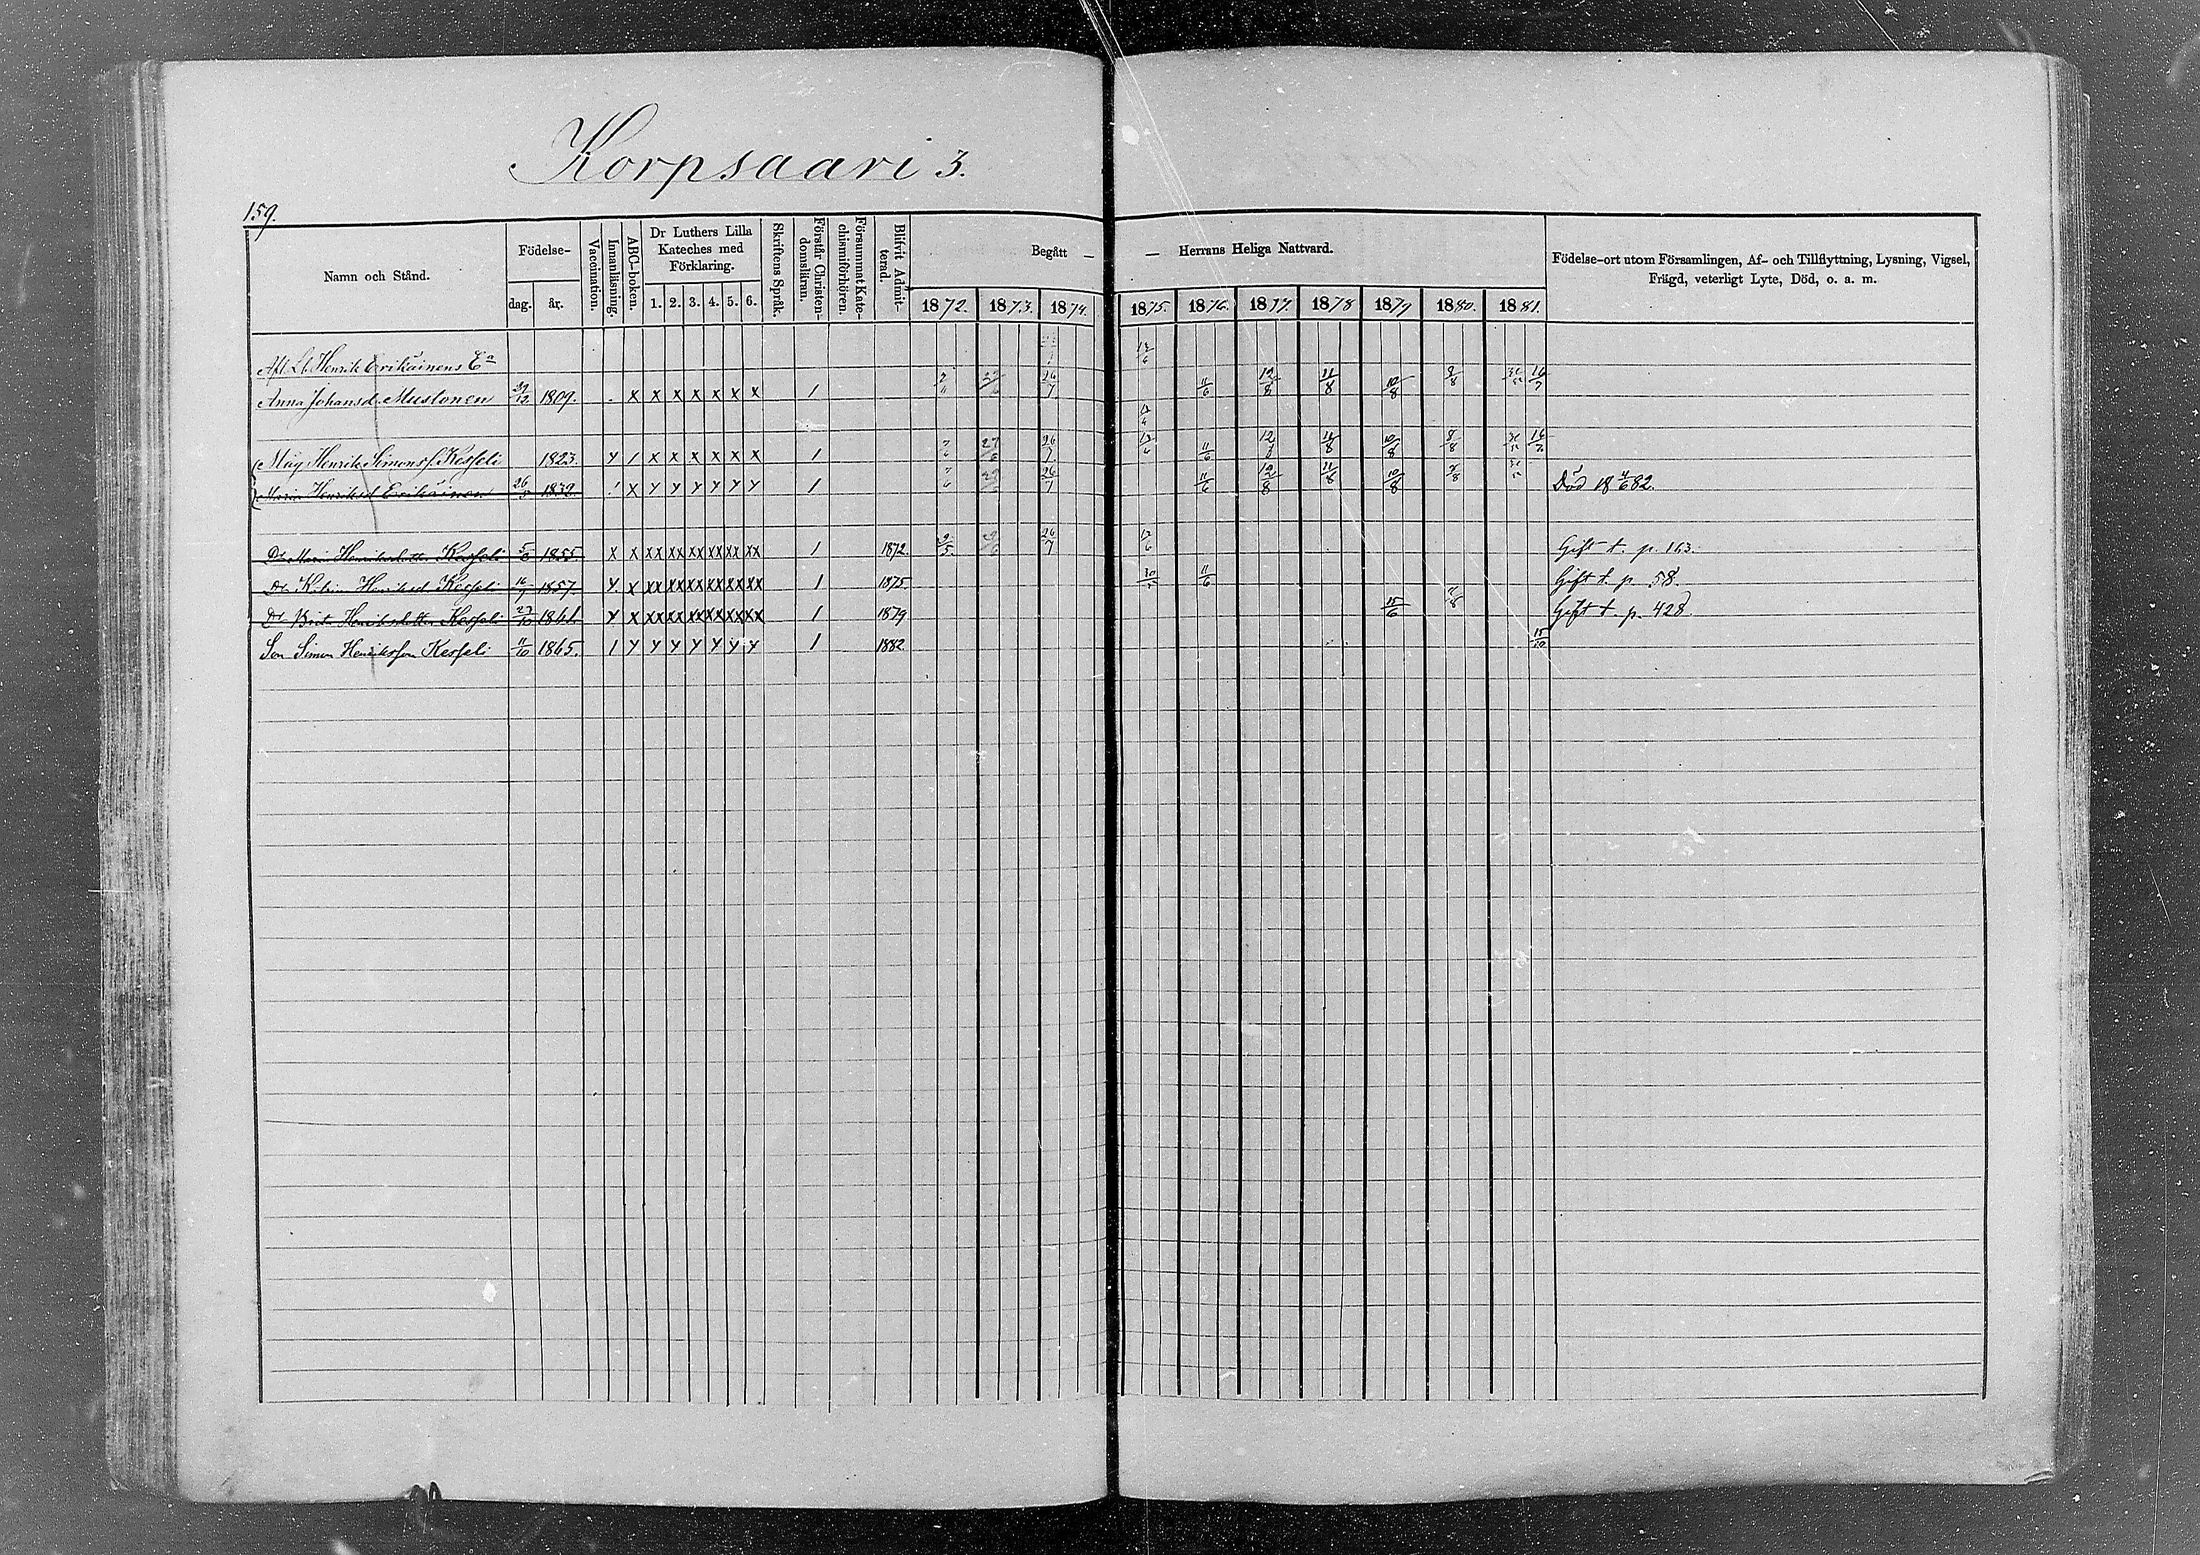 Korpsaari 3.
159.
Namn och Stånd.
Födelse-
dag.
år.
Vaccination.
Innanläsning.
ABC-boken.
Dr Luthers Lilla
Kateches med
Förklaring.
1. 2. 3. 4. 5. 6.
Skriftens Språk.
Förstår Christen-
domsläran.
Försummat Kate-
chismiförhören.
Blifvit Admit-
terad.
Begått —
— Herrans Heliga Nattvard.
1872. 1873. 1874. 1875. 1876. 1877. 1878 1879 1880. 1881.
Födelse-ort utom Församlingen, Af- och Tillflyttning, Lysning, Vigsel,
Frägd, veterligt Lyte, Död, o. a. m.
Afl. Lb. Henrik Erikäinens Ea 12/6
Anna Johansd. Mustonen 29/12 1809. x x x x x x x 1 26/7 11/6 12/8 11/8 10/8 8/8 16/7
Måg Henrik Simonss. Kesseli 1823. y / x x x x x x 1 27/6 26/7 11/6 12/8 11/8 10/8 8/8 16/7
Maria Henriksd Erikäinen 1832. x y y y y y y 1 26/7 11/6 12/8 11/8 10/8 Död 18 4/6 82.
Dr Maria Henriksdotter Kesseli 1855. x x xx xx xx xx xx xx 1 1872. 26/7 Gift t. p. 163.
Dr Katrina Henriksd Kesseli 1857. y. x xx xx xx xx xx xx 1 1875 11/6 Gift t. p. 58.
Dr Brita Henriksdotter Kesseli 27/10 1861. y x xx xx xx xx xx xx 1 1879 15/6 Gift t. p. 428.
Son Simon Henriksson Kesseli 11/10 1865. 1 y y y y y y y 1 1882 15/10